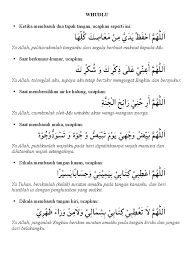 WHUDLU
• Ketika membasuh dua tapak tangan, ucapkan seperti ini:
اَللّٰهُمَّ احْفَظْ يَدَيَّ مِنْ مَعَاصِيْكَ كُلِّهَا
Ya Allah, peliharakanlah tanganku dari segala berbuat maksiat kepada-Mu.
• Saat berkumur-kumur, ucapkan:
اَللّٰهُمَّ اَعِنِّيْ عَلَى ذِكْرِكَ وَ شُكْرِكَ
Ya Allah, tolonglah aku, supaya aku tetap mengingat Engkau dan bersyukur
• Saat membersihkan air ke hidung, ucapkan:
اَللّٰهُمَّ أَرِحْنِيْ رَائِحَةَ الْجَنَّةِ
Ya Allah,
• Saat membasuh muka, ucapkan:
اَللّٰهُمَّ بَيِّضْ وَجْهِيْ يَوْمَ تَبْيَضُّ وُجُوْهٌ وَ تَسْوَدُّ وُجُوْهٌ
Ya Allah, putihkanlah wajahku pada hari wajah manusia dan
dihitamkan wajah
• Dikala membasuh tangan kanan, ucapkan:
اَللّٰهُمَّ أَعْطِنِيْ كِتَابِيْ بِيَمِيْنِيْ وَحَاسِبْنِيْ حِسَابًا يَسِيْرًا
Ya Tuhan, berikanlah (kelak) suratan amalku pada tangan kananku, dan beri
hisablah aku dengan penghisaban yang
• Dikala membasuh tangan kiri, ucapkan:
اَللّٰهُمَّ لاَ تُعْطِنِيْ كِتَابِيْ بِشِمَالِيْ وَلاَ مِنْ وَرَاءِ ظَهْرِيْ
Ya Allah, janganlah Engkau berikan suratan amalku pada tangan kiriku dan jangan
dari belakangku.